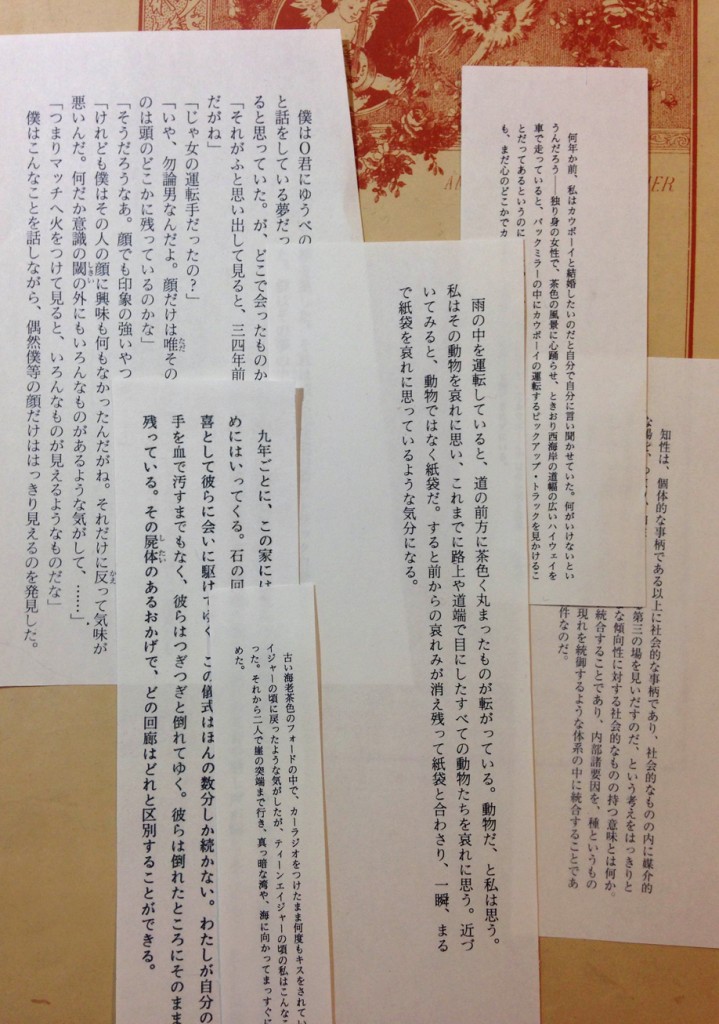 何年か前、私はカウボーイと結婚したいのだと自分で自分に言い聞かせていた。何がいけないとい
うんだろう――独り身の女性で、茶色の風景に心踊らせ、ときおり西海岸の道幅の広いハイウェイを
車で走っていると、バックミラーの中にカウボーイの運転するピックアップ・トラックを見かけるこ
とだってあるというのに
も、まだ心のどこかでカ
知性は、個体的な事柄である以上に社会的な事柄であり、社会的なものの内に媒介的
第三の場を見いだすのだ、という考えをはっきりと
な傾向性に対する社会的なものの持つ意味とは何か。
統合することであり、内部諸要因を、種というもの
現れを統御するような体系の中に統合することであ
件なのだ。
雨の中を運転していると、道の前方に茶色く丸まったものが転がっている。動物だ、と私は思う。
私はその動物を哀れに思い、これまでに路上や道端で目にしたすべての動物たちを哀れに思う。近づ
いてみると、動物ではなく紙袋だ。すると前からの哀れみが消え残って紙袋と合わさり、一瞬、まる
で紙袋を哀れに思っているような気分になる。
僕はO君にゆうべの
と話をしている夢だっ
ると思っていた。が、どこで会ったものか
「それがふと思い出して見ると、三四年前
だがね」
「じゃ女の運転手だったの？」
「いや、勿論男なんだよ。顔だけは唯その
のは頭のどこかに残っているのかな」
「そうだろうなあ。顔でも印象の強いやつ
「けれども僕はその人の顔に興味も何もなかったんだがね。それだけに反って気味が
悪いんだ。何だか意識の閾の外にもいろんなものがあるような気がして、……」
「つまりマッチへ火をつけて見ると、いろんなものが見えるようなものだな」
僕はこんなことを話しながら、偶然僕等の顔だけははっきり見えるのを発見した。
九年ごとに、この家には
めにはいってくる。石の回
喜として彼らに会いに駆けてゆく この儀式はほんの数分しか続かない。わたしが自分の
手を血で汚すまでもなく、彼らはつぎつぎと倒れてゆく。彼らは倒れたところにそのまま
残っている。その屍体のあるおかげで、どの回廊はどれと区別することができる。
古い海老茶色のフォードの中で、カーラジオをつけたまま何度もキスをされてい
イジャーの頃に戻ったような気がしたが、ティーンエイジャーの頃の私はこんなこ
った。それから二人で崖の突端まで行き、真っ暗な湾や、海に向かってまっすぐに
めた。